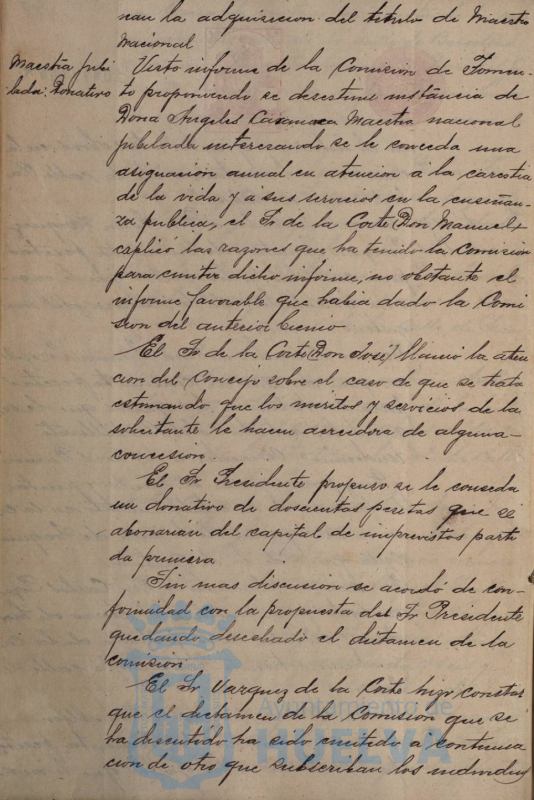 nan la adquisicion del titulo de Maestro
Nacional
Maestra Jubi
lada: Donativo
Visto informe de la Comision de Fomen-
to proponiendo se desestime instancia de
Doña Angeles Maestra nacional
jubilada interezando se le conceda una
asignación anual en atencion á la carestia
de la vida y á sus servicios en la enseñan-
za publica, el Sr de la Corte (Don Manuel)
explicó las razones que ha tenido la Comision
para emitir dicho informe, no obstante el
informe favorable que habia dado la Comi
sion del anterior bienio
El Sr de la Corte (Don José) llamó la aten
cion del Concejo sobre el caso de que se trata
estimando que los meritos y servicios de la
solicitante le hacen acredora de alguna
concesion.
El Sr Presidente propuso se le conseda
un donativo de doscientas pesetas que se
abonarian del capital de imprevistos parti
da primera
Sin mas discusion se acordó de con-
formidad con la propuesta del Sr Presidente
quedando desechado el dictamen de la
comision.
El Sr Vazquez de la Corte hizo constar
que el dictamen de la Comision que se
ha discutido ha sido emitido a continua
cion de otro que subscriban los individuos
Ayuntamiento de
HUELVA